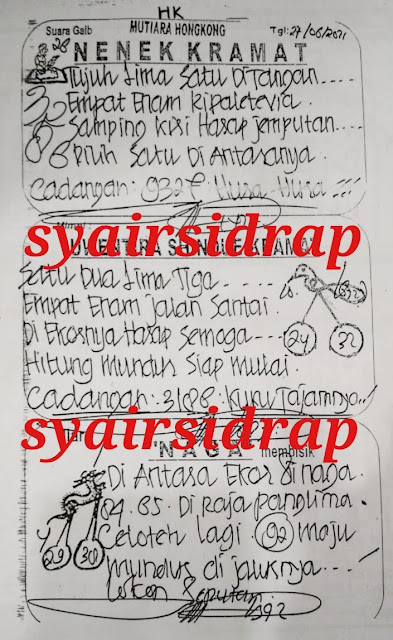 HK
Suara Gaib MUTIARA HONGKONG Tgl: 27/06/2021
28 NENEK KRAMAT
Tujuh Lima Satu Di Tangan....
Empat Enam
Samping Kiri Harap Jemputan....
Pilih Satu Di Antaranya.
Cadangan: 9327
syairsidrap
Satu Dua Lima Tiga
Empat Enam Jalan Santai.
Di Ekornya Harap Semoga
24 32
Hitung Mundur Siap Mulai.
Cadangan: 3188. Kuku Tajamnya..!
syairsidrap
"NAGA" membisik
Di Antara Ekor Si naga.
84. 85. Di Raja Panglima
Celoteh Lagi 92 maju
29 30
mundur di